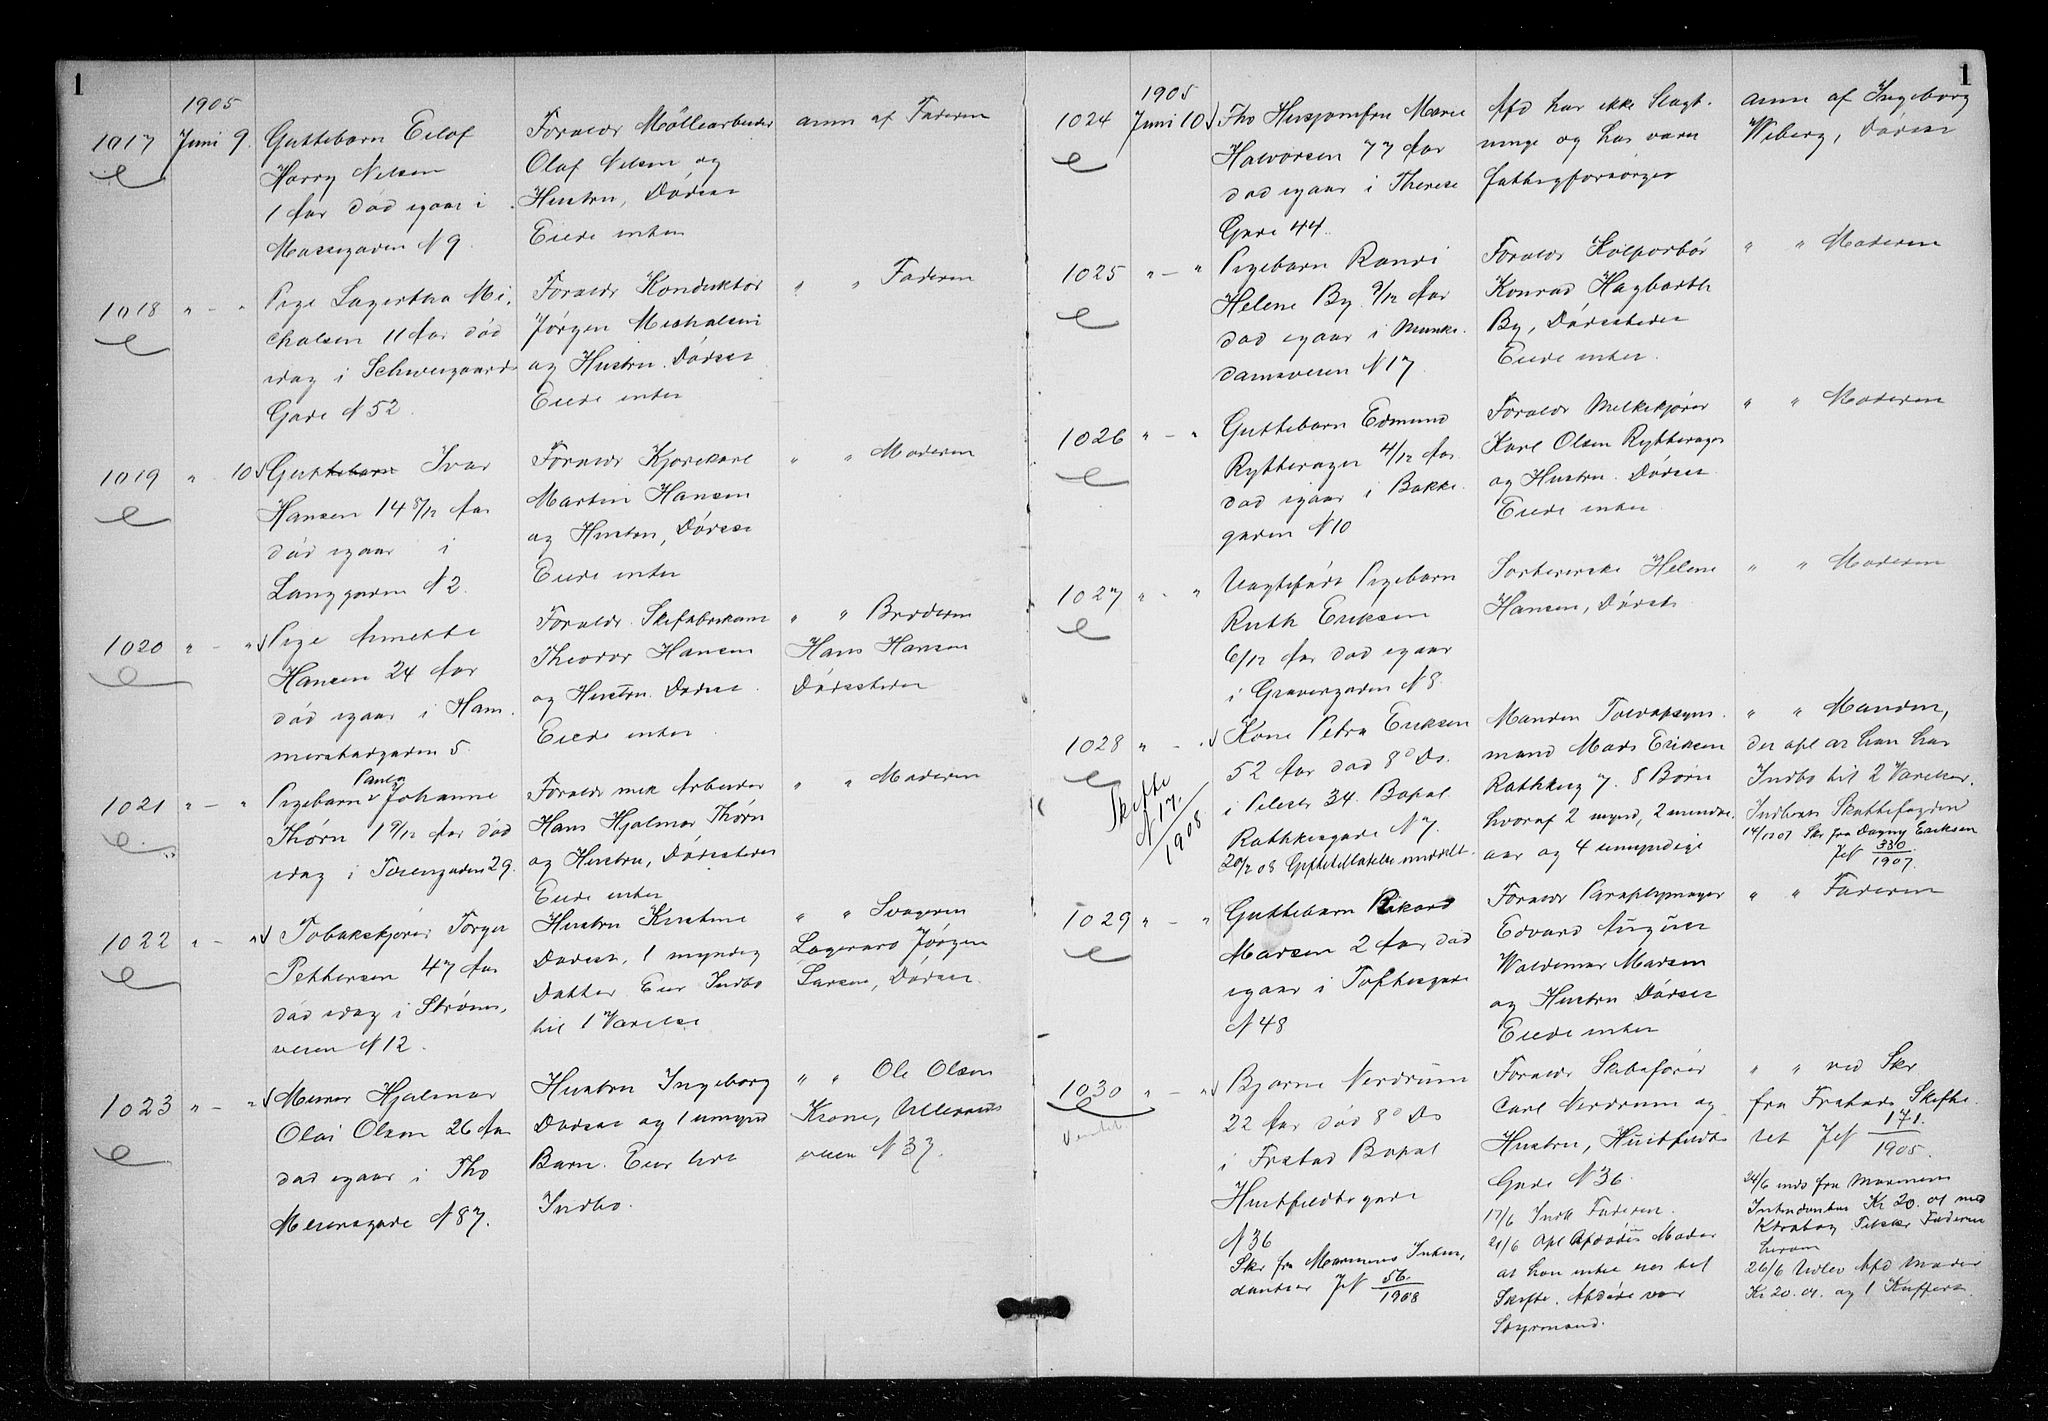 1
1905
1017 Juni 9. Guttebarn Eilof
Harry Nilsen
1 Aar død igaar i
Mossegaden N 9.
Foraldr Møllearbeider
Olaf Nilsen og
Hustru, Dødssr
Eiede intet
anm af Faderen
1018 " - " Pige Lagertha Mi,
chalsen 11 Aar død
idag i Schweigaards
Gade N 52.
Foraldr Konduktør
Jørgen Michalsen
og Hustru. Dødssr
Eiede intet
" " Faderen
1019 " 10 Guttebarn Ivar
Hansen 14 8/12 Aar
død igaar i
Langgaden N 2.
Foraldr Kjørekarl
Martin Hansen
og Hustru, Dødssr
Eiede intet
" " Moderen
1020 " - " Pige Annette
Hansen 24 Aar
død igaar i Ham,
merstadgaden 5.
Foraldr. Skifabrikant
Theodor Hansen
og Hustru. Dødssr.
Eiede intet.
" " Broderen
Hans Hansen
Dødsstedet
1021 " - " Pigebarn Paula Johanne
Thørn 1 9/12 Aar død
idag i Torvgaden 29.
Foraldr mek Arbeider
Hans Hjalmar Thørn
og Hustru, Dødsstedet
Eiede intet
" " Moderen
1022 " - " Tobakskjører Torger
Pettersen 47 Aar
død idag i Strøms,
veien N 12.
Hustru Kirstine
Dødsst, 1 myndig
Datter. Eier Indbo
til 1 Værelse
" " Svogeren
Lagerarb Jørgen
Larsen, Dødssr
1023 " - " Murer Hjalmar
Olai Olsen 26 Aar
død igaar i Tho
Meiersgade N 87.
Hustru Ingeborg
Dødssr og 1 umynd
Barn. Eier lidt
Indbo.
" " Ole Olsen
Krone, Ullerns
veien N 37.
1
1905
1024 Juni 10 Fho Husjomfru Marie
Halvorsen 77 Aar
død igaar i Therese
Gade 44.
Afd har ikke Slagt,
ninge og har været
fattigforsørget
anm af Ingeborg
Weberg, Dødssr
1025 " - " Pigebarn Randi
Helene By. 9/12 Aar
død igaar i Munke,
damsveien N 17.
Foraldr Kolportør
Konrad Hagbarth
By, Dødsstedet
Eiede intet.
" " Moderen
1026 " - " Guttebarn Edmund
Rytterager 4/12 Aar
død igaar i Bakke,
gaden N 10
Foraldr Melkekjører
Karl Olsen Rytterager
og Hustru. Dødssr
Eiede intet
" " Moderen
1027 " - " Uægtefødt Pigebarn
Ruth Eriksen
6/12 Aar død igaar
i Gravergaden N 8.
Sorterерske Helene
Hansen, Dødsst.
" " Moderen
1028 " - " Kone Petra Eriksen
52 Aar død 8de Ds.
i Pilestr 34. Bopæl
Rathkesgade N 7.
20/2 08 Gjftetilladelse meddelt.
Skifte
N 17.
1908
Manden Toldopsyns,
mand Mads Eriksen
Rathkesg 7. 8 Børn
hvoraf 2 mynd, 2 mindre,
aar og 4 umyndige
" " Manden,
der opl at han har
Indbo til 2 Værelser.
Indber Skattefogden
14/1 07 Skr fra Dagny Eriksen
JN 330
1907.
1029 " - " Guttebarn Rikard
Madsen 2 Aar død
igaar i Toftesgade
N 48
Foraldr Paraplymager
Edvard August
Waldemar Madsen
og Hustru Dødssr
Eiede intet
" " Faderen
1030 " - " Bjarne Nerdrum
22 Aar død 8de Ds
i Frstad Bopæl
Huitfeldts gade
N 36
Skr fra Marinens Inten,
dantur JN 56
1908
Foraldr Skibsfører
Carl Nerdrum og
Hustru, Huitfeldts
Gade N 36.
17/6 Indk Faderen.
21/6 Opl Afdødes Moder
at han intet eier til
Skifte. Afdøde var
Styrmand.
" " ved Skr
fra Frstads Skifte,
ret JN 171.
1905.
24/6 inds fra Marinens
Intendantur Kr 20. 01 med
Kontrabog Tilskr Faderen
herom
26/6 Udlev Afd Moder
Kr 20. 01. og 1 Kuffert